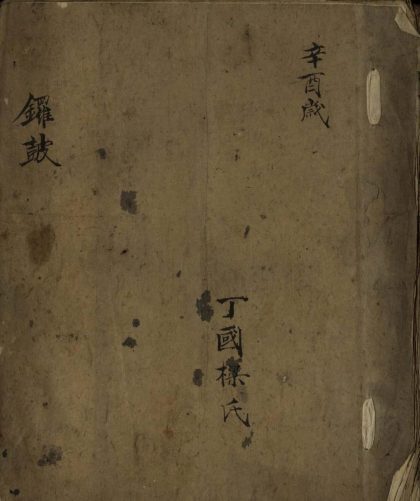 辛酉歲
丁國樑氏
鑼皷